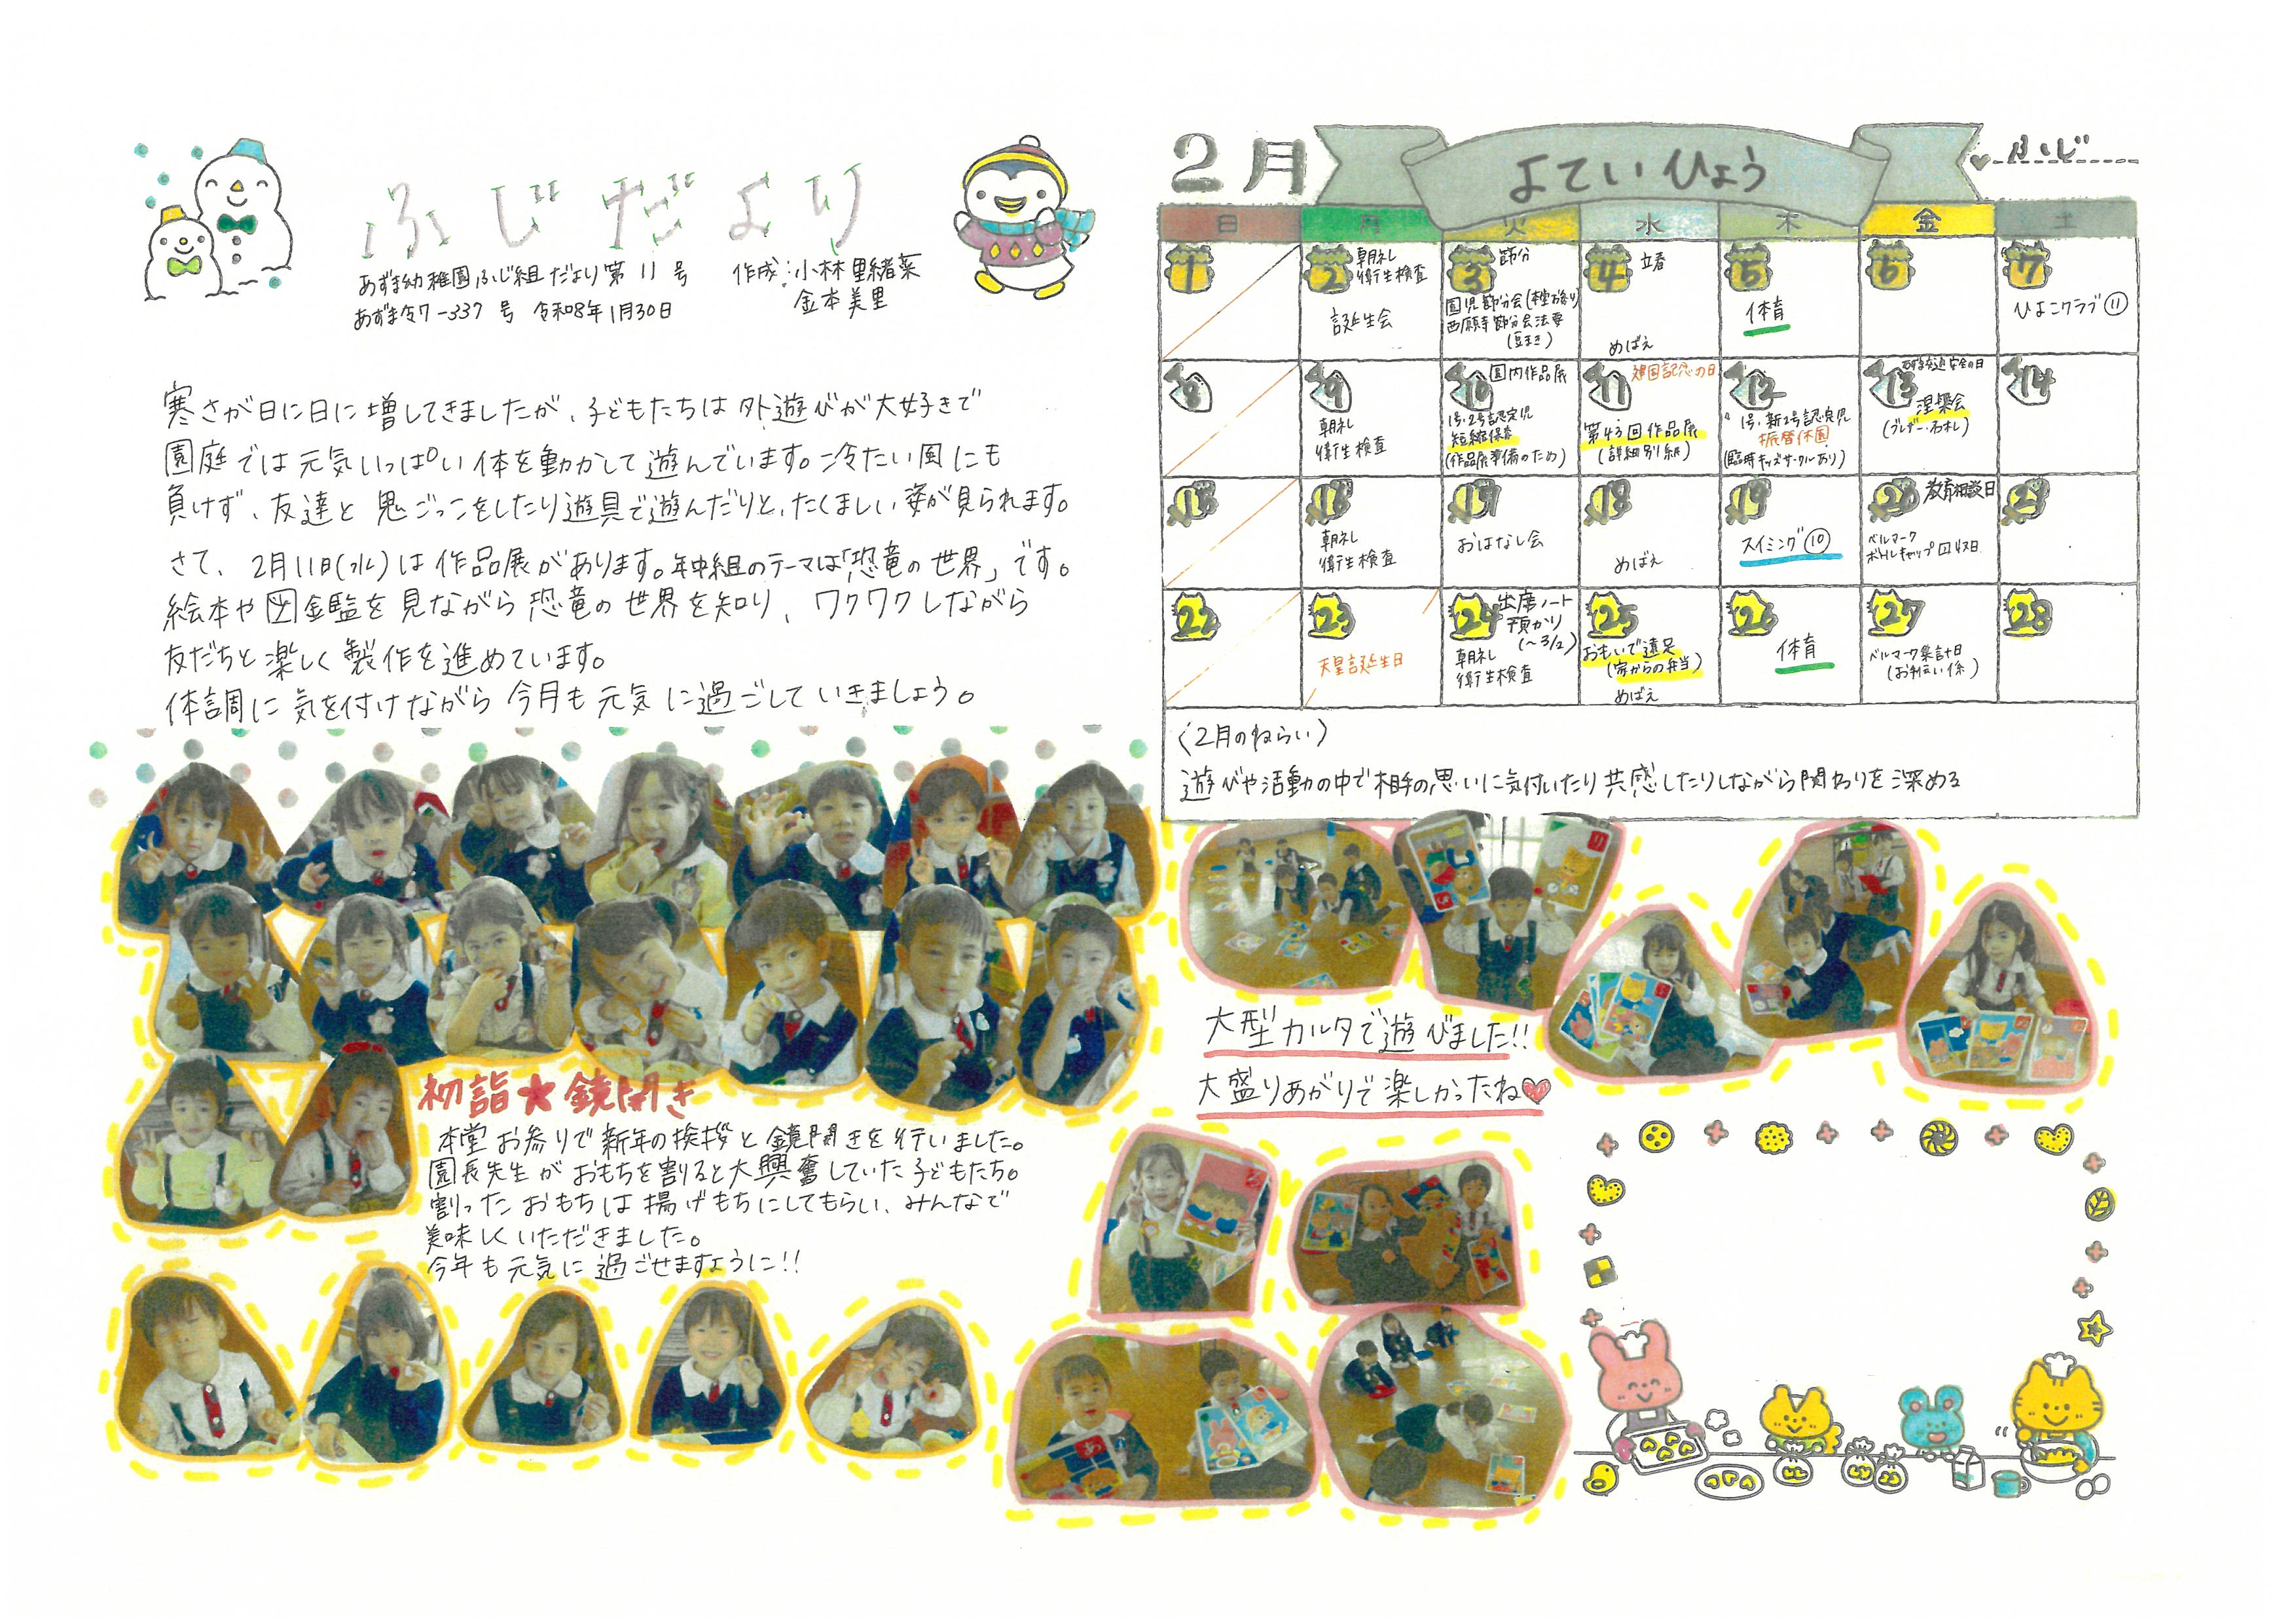 ふじだより
あずま幼稚園ふじ組だより第11号
あずま令7-337号 令和8年1月30日
作成:小林里緒菜
金本美里
寒さが日に日に増してきましたが、子どもたちは外遊びが大好きで
園庭では元気いっぱい体を動かして遊んでいます。冷たい風にも
負けず、友達と鬼ごっこをしたり遊具で遊んだりと、たくましい姿が見られます。
さて、2月11日(水)は作品展があります。年中組のテーマは「恐竜の世界」です。
絵本や図鑑を見ながら恐竜の世界を知り、ワクワクしながら
友だちと楽しく製作を進めています。
体調に気を付けながら今月も元気に過ごしていきましょう。
初詣★鏡開き
本堂お参りで新年の挨拶と鏡開きを行いました。
園長先生がおもちを割ると大興奮していた子どもたち。
割ったおもちは揚げもちにしてもらい、みんなで
美味しくいただきました。
今年も元気に過ごせますように!!
2月 よていひょう ふじ
日 月 火 水 木 金 土
1
2 朝礼
衛生検査
誕生会
3 節分
園児節分会(本堂お参り)
西願寺節分会法要
(豆まき)
4 立春
めばえ
5
体育
6
7
ひよこクラブ⑪
8
9
朝礼
衛生検査
10 園内作品展
1号・2号認定児
短縮保育
(作品展準備のため)
11 建国記念の日
第43回作品展
(詳細別紙)
12
1号・新2号認定児
振替休園
(臨時キッズサークルあり)
13 あずま交通安全の日
涅槃会
(ブレザー・お札)
14
15
16
朝礼
衛生検査
17
おはなし会
18
めばえ
19
スイミング⑩
20 教育相談日
ベルマーク
ボトルキャップ回収日
21
22
23
天皇誕生日
24 出席ノート
預かり
(~3/2)
朝礼
衛生検査
25
おもいで遠足
(家からの弁当)
めばえ
26
体育
27
ベルマーク集計日
(お手伝い係)
28
〈2月のねらい〉
遊びや活動の中で相手の思いに気付いたり共感したりしながら関わりを深める
大型カルタで遊びました!!
大盛りあがりで楽しかったね♥